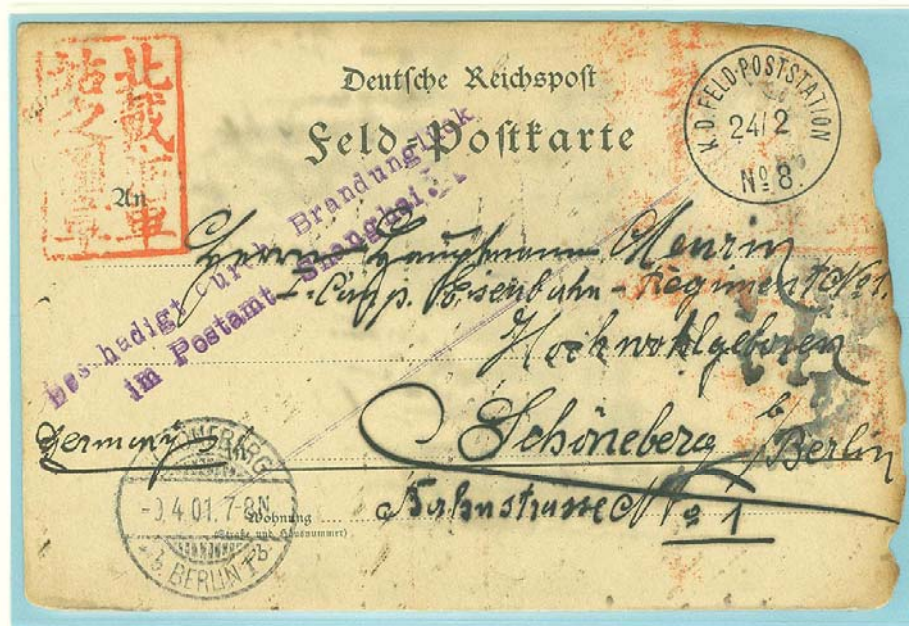 北戴河車
站之圖章
Deutsche Reichspost
Feld-Postkarte
K.D. FELD-POSTSTATION
24/2
Nº 8.
Beschädigt durch Brandunglück
im Postamt Shanghai.
An
Herrn Hauptmann Meurin
I. Comp. Eisenbahn-Regiment No 1.
Hochwohlgeboren
Schöneberg b/Berlin
Germany
SCHÖNEBERG
4.01.7-8N.
b. BERLIN
Wohnung
(Straße und Hausnummer)
No 1